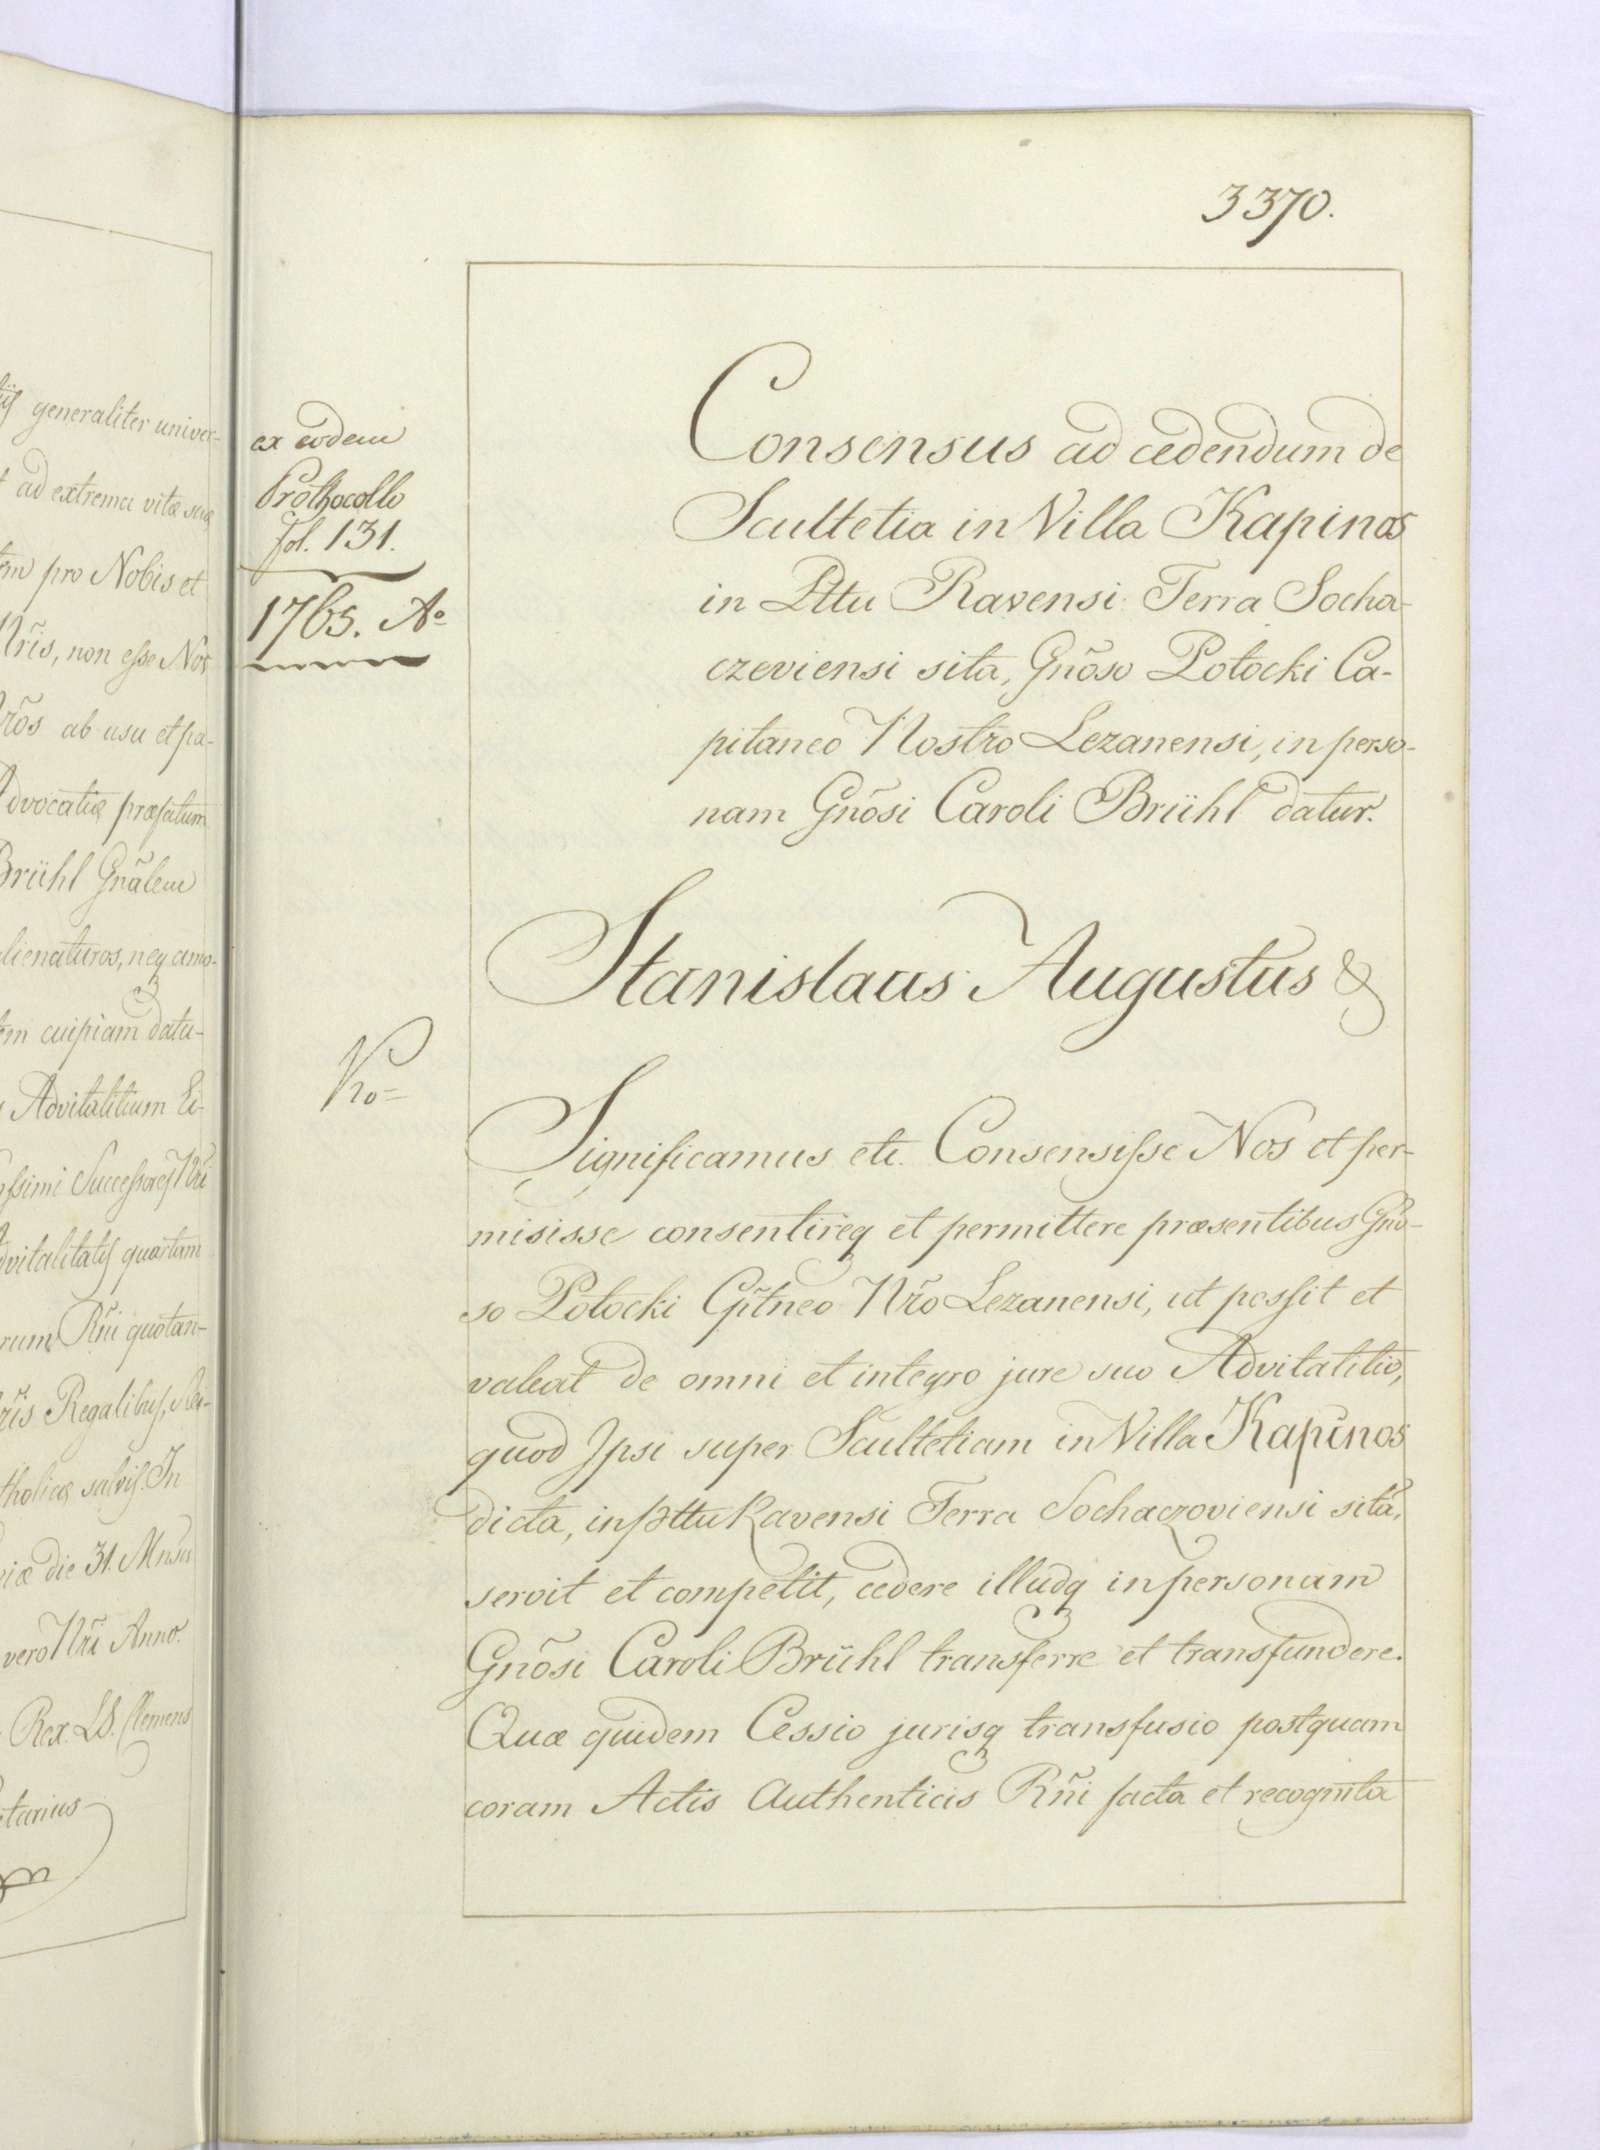 ijs generaliter univer-
ad extrema vitæ suæ
pro Nobis et
Nr̃is, non esse Nos
ab usu et pa-
Advocatia præfatum
Brühl Gnãlem
neq amo-
cuipiam datu-
Advitalitium Ei
Successores Nri
quartam
Rñi quotan-
Regalibus, Rei-
salvis. In
die 31. Mnsis
vero Nr̃i Anno.
Rex. LS. Clemens
3370.
ex eodem
Prothocollo
fol. 131.
1765. Ao
Consensus ad cedendum de
Scultetia in Villa Kapinos
in Pttu Ravensi Terra Socha-
czeviensi sita, Gnõso Potocki Ca-
pitaneo Nostro Lezanensi, in perso-
nam Gnõsi Caroli Brühl datur.
Stanislaus Augustus &
Significamus etc. Consensisse Nos et per-
misisse consentireq et permittere præsentibus Gño-
so Potocki Cpĩtneo Nr̃o Lezanensi, ut possit et
valeat de omni et integro jure suo Advitalitio,
quod Ipsi super Scultetiam in Villa Kapinos
dicta, in Pttu Ravensi Terra Sochaczoviensi sita,
servit et competit, cedere illudq in personam
Gnõsi Caroli Brühl transferre et transfundere.
Quæ quidem Cessio jurisq transfusio postquam
coram Actis Authenticis Rñi facta et recognita